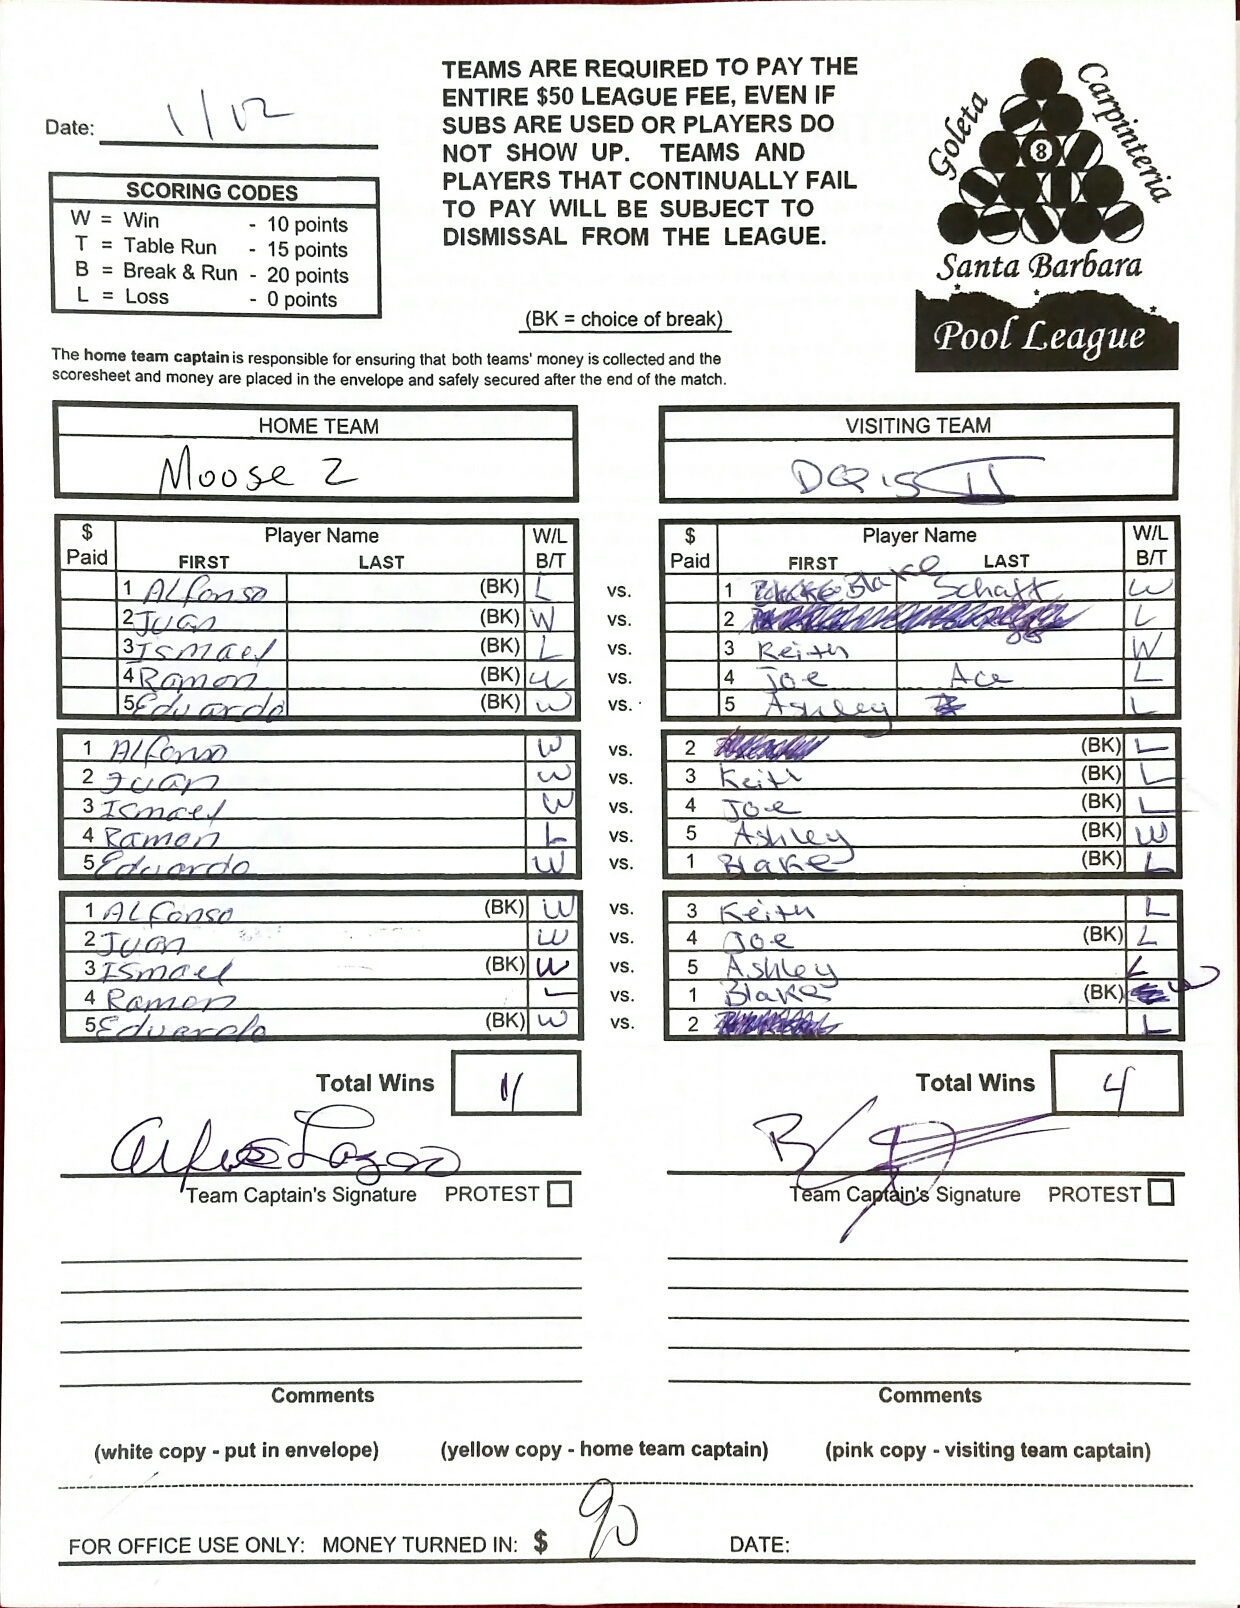 TEAMS ARE REQUIRED TO PAY THE
ENTIRE $50 LEAGUE FEE, EVEN IF
SUBS ARE USED OR PLAYERS DO
NOT SHOW UP. TEAMS AND
PLAYERS THAT CONTINUALLY FAIL
TO PAY WILL BE SUBJECT TO
DISMISSAL FROM THE LEAGUE.
Goleta
Carpinteria
8
Santa Barbara
Pool League
Date: 1/12
SCORING CODES
W = Win - 10 points
T = Table Run - 15 points
B = Break & Run - 20 points
L = Loss - 0 points
(BK = choice of break)
The home team captain is responsible for ensuring that both teams' money is collected and the
scoresheet and money are placed in the envelope and safely secured after the end of the match.
HOME TEAM VISITING TEAM
Moose 2 II
$ Paid Player Name FIRST LAST W/L B/T $ Paid Player Name FIRST LAST W/L B/T
1 Alfonso (BK) L vs. 1 Blake Schaft W
2 Juan (BK) W vs. 2 L
3 Ismael (BK) L vs. 3 Keith W
4 Ramon (BK) W vs. 4 Joe Ace L
5 Eduardo (BK) W vs. 5 Ashley L
1 Alfonso W vs. 2 (BK) L
2 Juan W vs. 3 Keith (BK) L
3 Ismael W vs. 4 Joe (BK) L
4 Ramon L vs. 5 Ashley (BK) W
5 Eduardo W vs. 1 Blake (BK) L
1 Alfonso (BK) W vs. 3 Keith L
2 Juan W vs. 4 Joe (BK) L
3 Ismael (BK) W vs. 5 Ashley L
4 Ramon L vs. 1 Blake (BK) W
5 Eduardo (BK) W vs. 2 L
Total Wins 11 Total Wins 4
Team Captain's Signature PROTEST Team Captain's Signature PROTEST
Comments Comments
(white copy - put in envelope) (yellow copy - home team captain) (pink copy - visiting team captain)
FOR OFFICE USE ONLY: MONEY TURNED IN: $ 90 DATE: